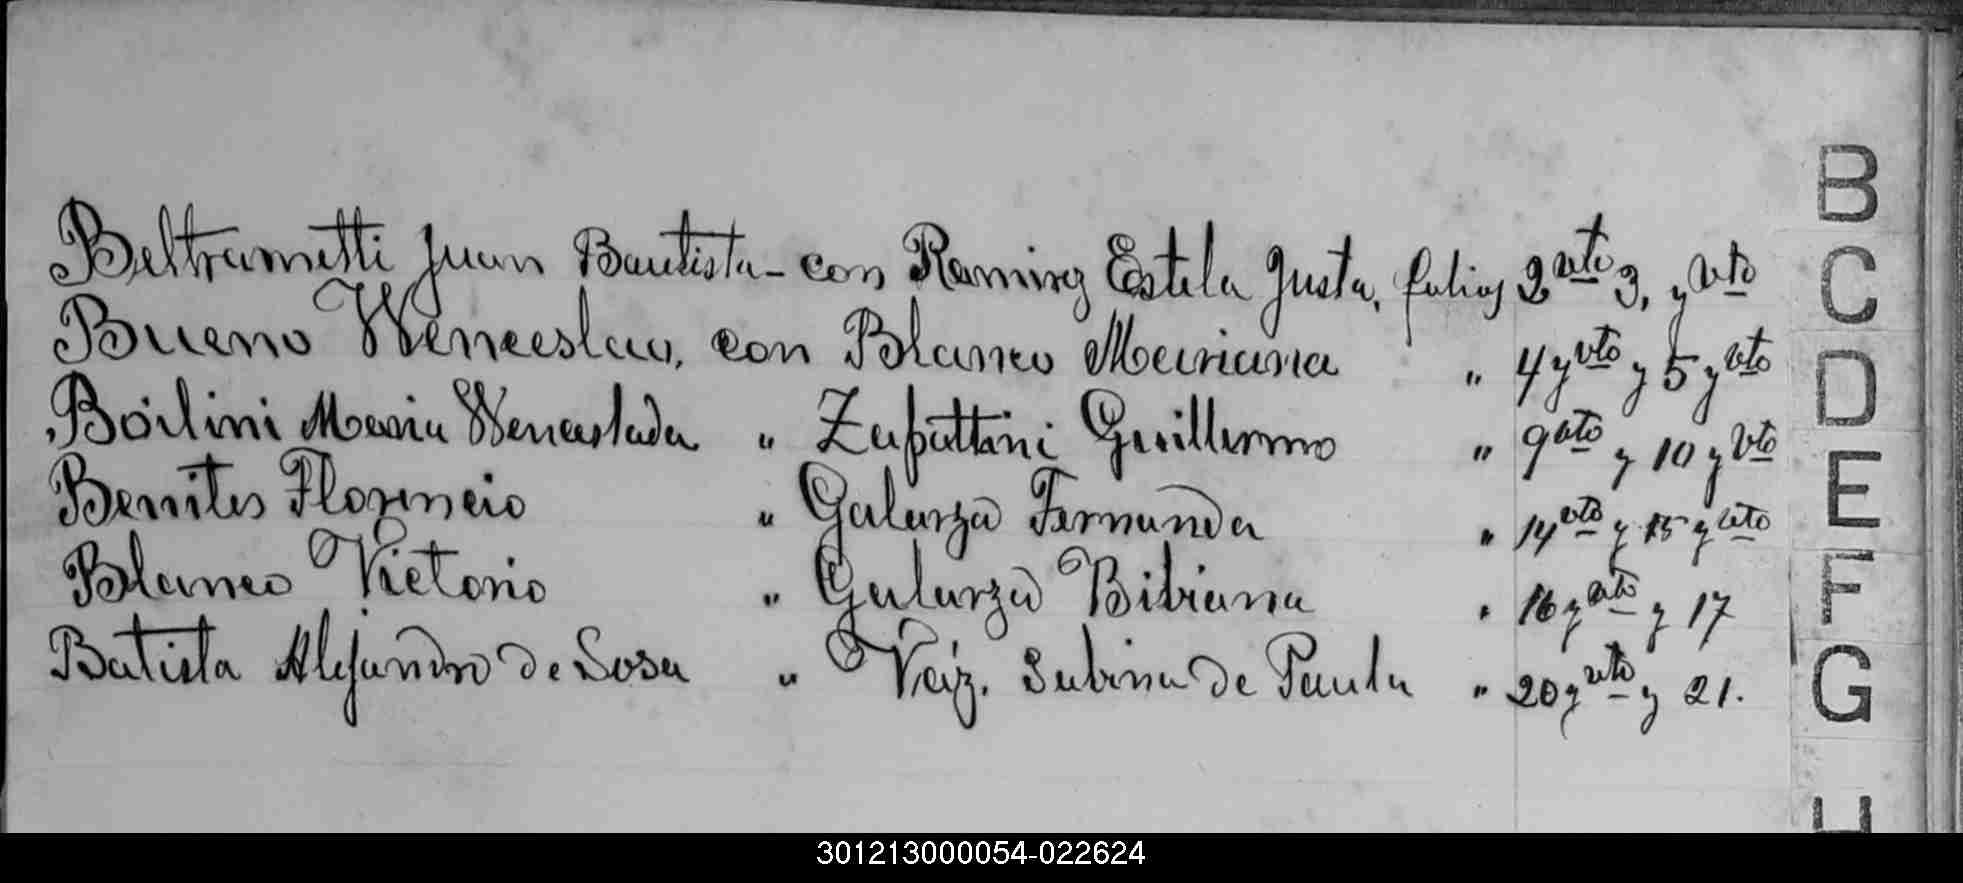 Beltrametti Juan Bautista - con Ramirez Estela Justa, folios 2 vto 3, y vto
Bueno Wenceslao, con Blanco Mariana " 4 y vto y 5 y vto
Boilini Maria Wenceslada " Zapattini Guillermo " 9 vto y 10 y vto
Benites Florencio " Galarza Fernanda " 14 vto y 15 y vto
Blanco Victorio " Galarza Bibiana " 16 y vto y 17
Batista Alejandro de Sosa " Vaiz. Sabina de Paula " 20 y vto y 21.
B
C
D
E
F
G
H
301213000054-022624